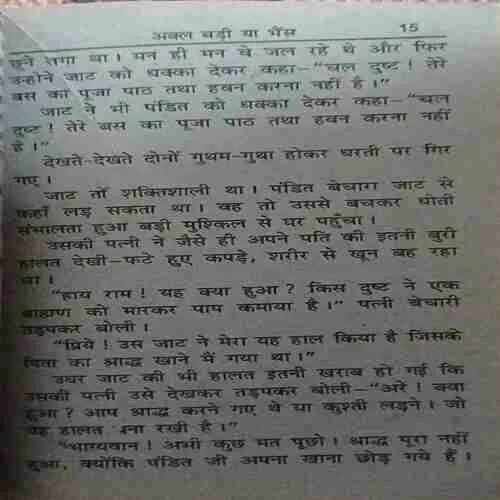 अक्ल बड़ी या भैंस 15
छूने लगा था। मन ही मन वे जल रहे थे और फिर
उन्होंने जाट को धक्का देकर कहा-“चल दुष्ट! तेरे
बस का पूजा पाठ तथा हवन करना नहीं है।”
जाट ने भी पंडित को धक्का देकर कहा-“चल
दुष्ट! तेरे बस का पूजा पाठ तथा हवन करना नहीं
है।”
देखते-देखते दोनों गुथम-गुथा होकर धरती पर गिर
गए।
जाट तो शक्तिशाली था। पंडित बेचारा जाट से
कहाँ लड़ सकता था। वह तो उससे बचकर धोती
संभालता हुआ बड़ी मुश्किल से घर पहुँचा।
उसकी पत्नी ने जैसे ही अपने पति की इतनी बुरी
हालत देखी-फटे हुए कपड़े, शरीर से खून बह रहा
था।
“हाय राम! यह क्या हुआ? किस दुष्ट ने एक
ब्राह्मण को मारकर पाप कमाया है।” पत्नी बेचारी
तड़पकर बोली।
“प्रिये! उस जाट ने मेरा यह हाल किया है जिसके
पिता का श्राद्ध खाने मैं गया था।”
उधर जाट की भी हालत इतनी खराब हो गई कि
उसकी पत्नी उसे देखकर तड़पकर बोली-“अरे! क्या
हुआ? आप श्राद्ध करने गए थे या कुश्ती लड़ने। जो
यह हालत बना रखी है।”
“भाग्यवान! अभी कुछ मत पूछो। श्राद्ध पूरा नहीं
हुआ, क्योंकि पंडित जी अपना खाना छोड़ गये हैं।